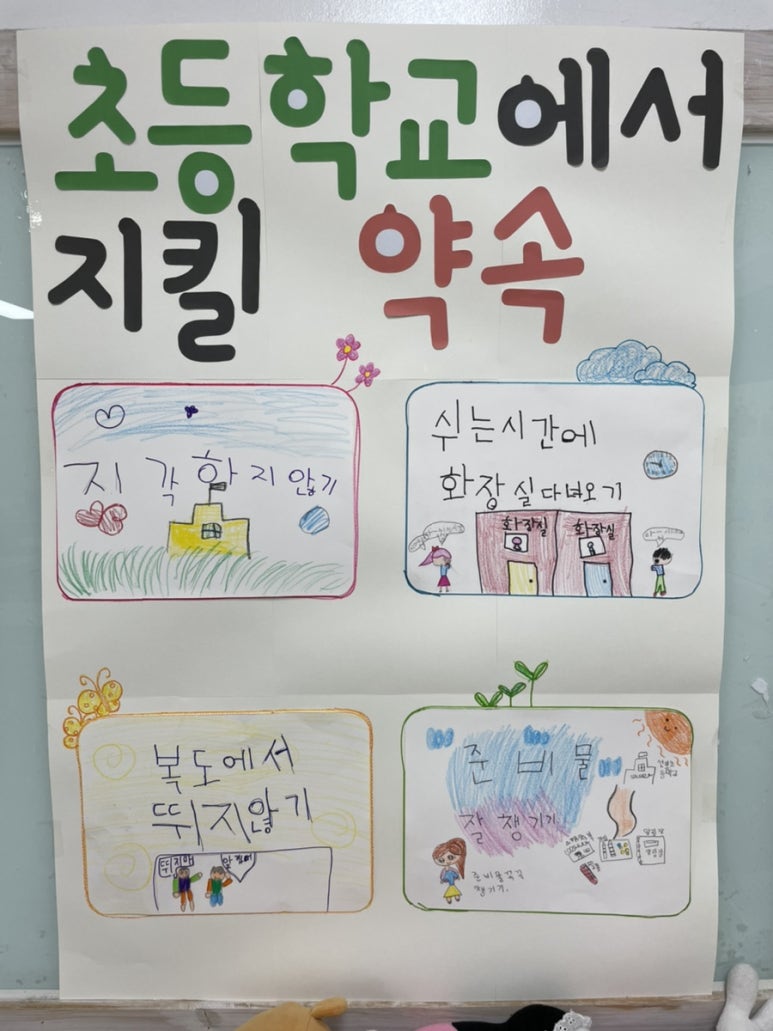 초등학교에서
지킬 약속
지각하지 않기
쉬는시간에
화장실 다녀오기
화장실 화장실
복도에서
뛰지않기
뛰지마
준비물
잘 챙기기
준비물꼭꼭
챙기기.